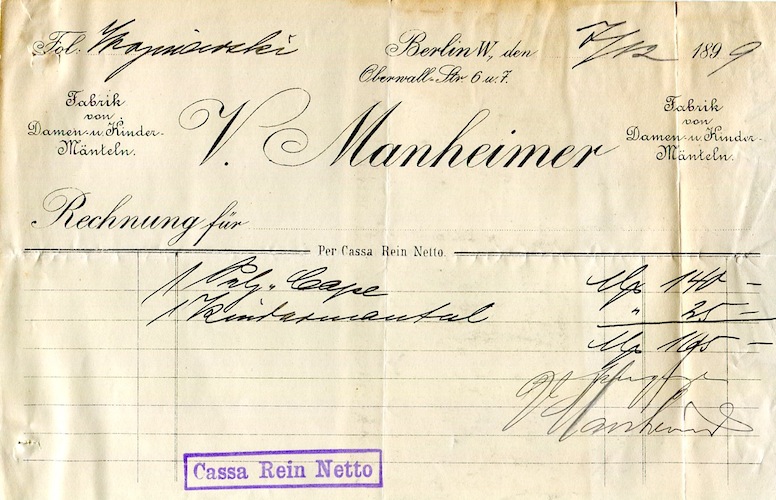 Fol.
Berlin W, den 7/12 1899
Oberwall-Str. 6 u. 7.
Fabrik
von
Damen- u. Kinder-
Mänteln.
V. Manheimer
Fabrik
von
Damen- u. Kinder-
Mänteln.
Rechnung für
Per Cassa Rein Netto.
1 Pelz-Cape Mk 140 –
1 Kindermantel " 25 –
Mk 165 –
V. Manheimer
Cassa Rein Netto